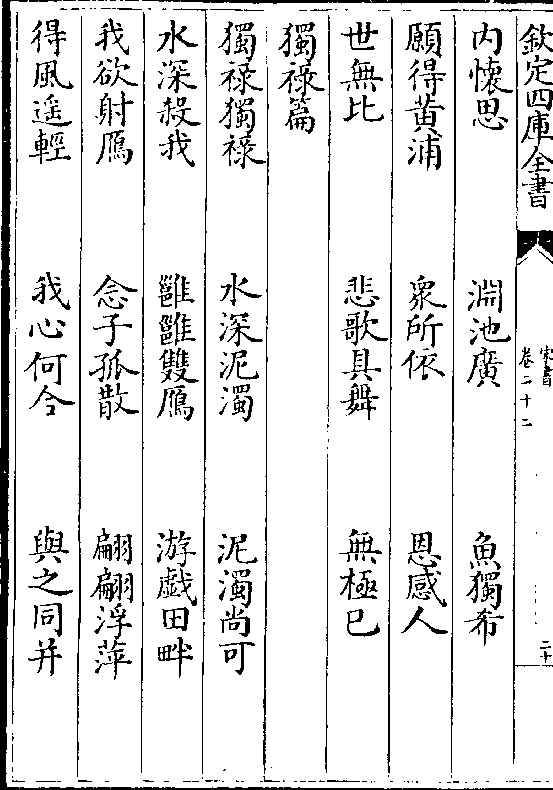 欽定四庫全書
宋書
卷二十二
二十
内懷思　淵池廣　魚獨希
願得黃浦　衆所依　恩感人
世無比　悲歌具舞　無極已
獨祿篇
獨祿獨祿　水深泥濁　泥濁尚可
水深殺我　雝雝雙鴈　游戲田畔
我欲射鴈　念子孤散　翩翩浮萍
得風遥輕　我心何合　與之同并